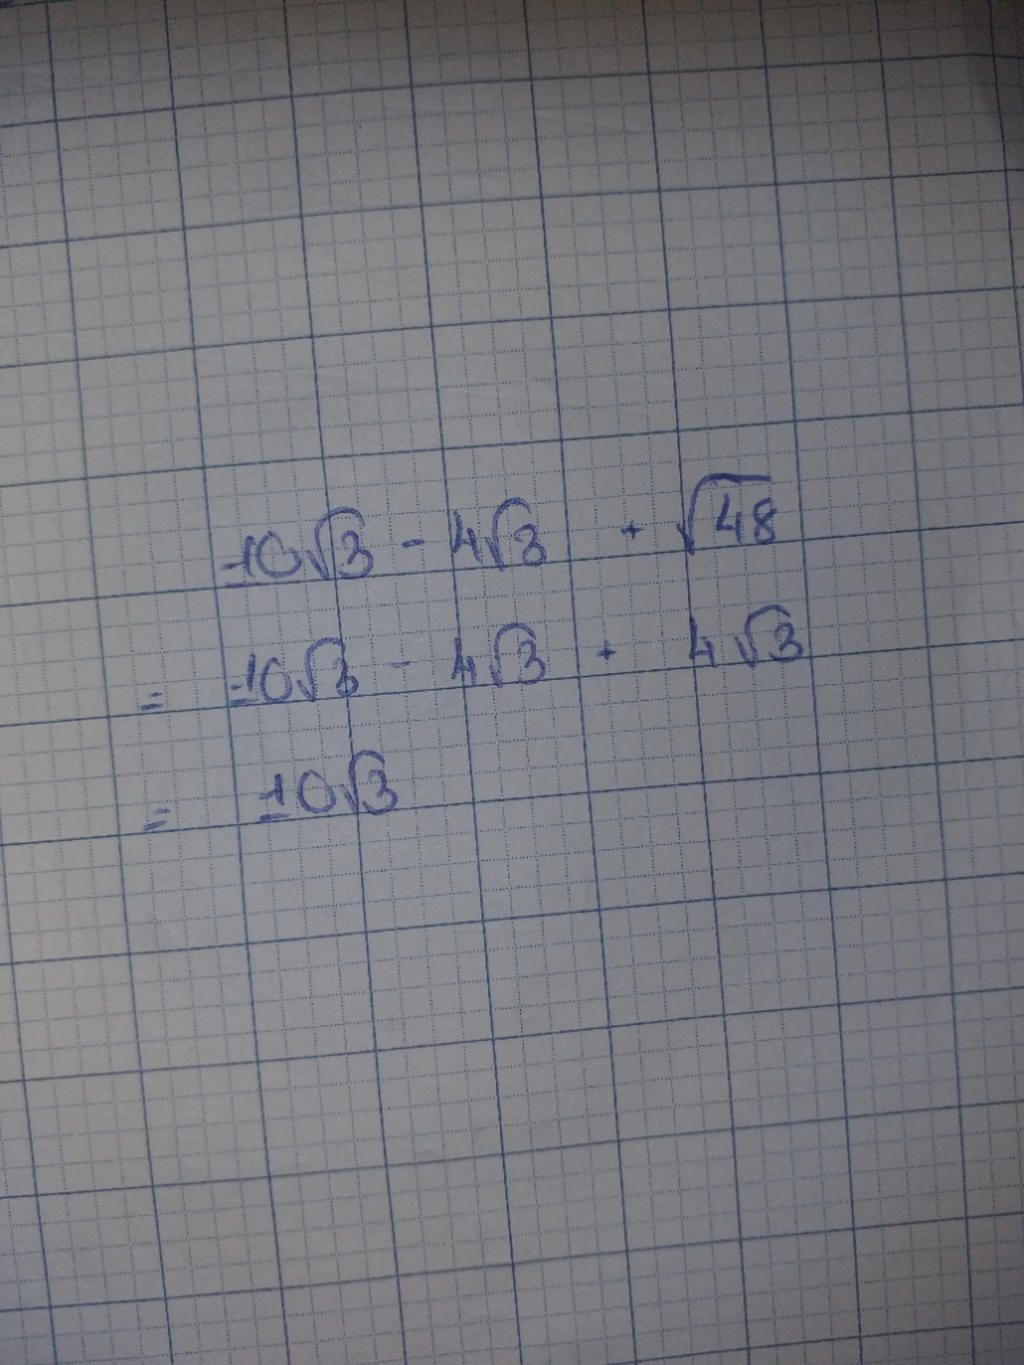 10√3 - 4√3 + √48
= 10√3 - 4√3 + 4√3
= 10√3